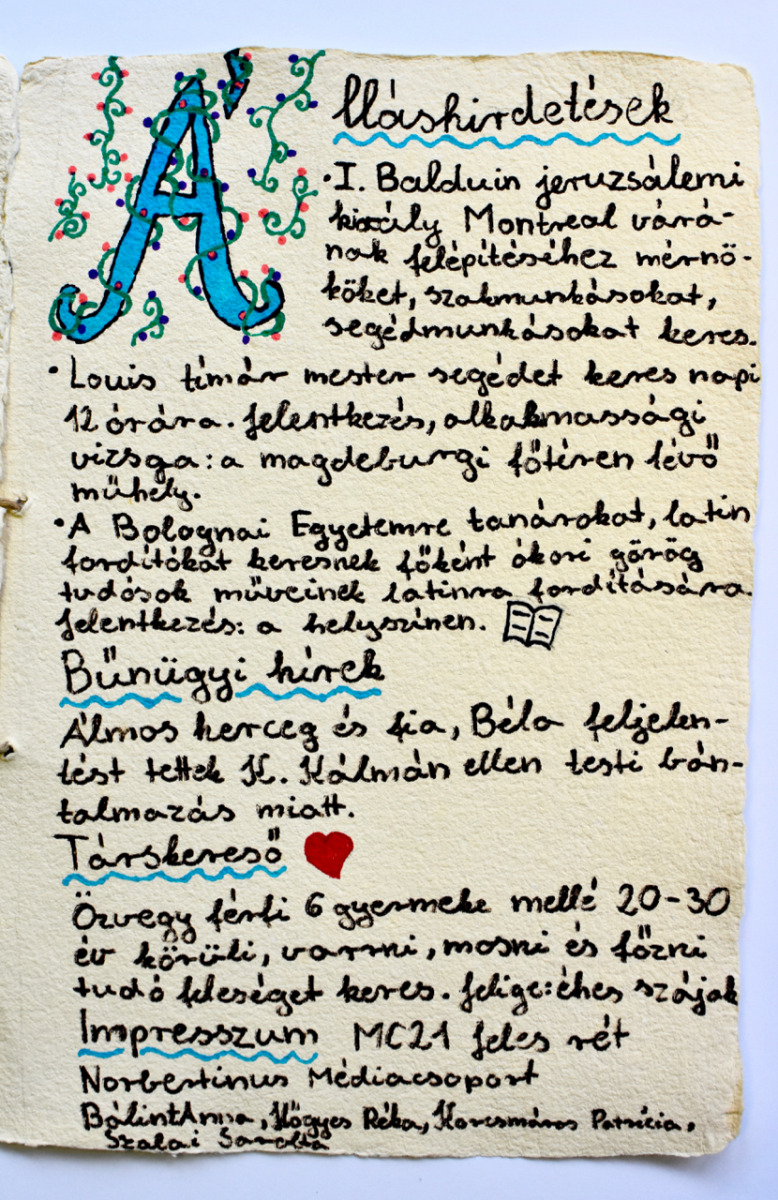 Álláshirdetések
• I. Balduin jeruzsálemi
király Montreal várá-
nak felépítéséhez mérnö-
köket, szakmunkásokat,
segédmunkásokat keres.
• Louis tímár mester segédet keres napi
12 órára. Jelentkezés, alkalmassági
vizsga: a magdeburgi főtéren lévő
műhely.
• A Bolognai Egyetemre tanárokat, latin
fordítókat keresnek főként ókori görög
tudósok műveinek latinra fordítására.
Jelentkezés: a helyszínen.
Bűnügyi hírek
Álmos herceg és fia, Béla feljelen-
tést tettek K. Kálmán ellen testi bán-
talmazás miatt.
Társkereső
Özvegy férfi 6 gyermeke mellé 20-30
év körüli, varrni, mosni és főzni
tudó feleséget keres. Jelige: éhes szájak
Impresszum MC21 Jeles rét
Norbertinus Médiacsoport
Bálint Anna, Kőgyes Réka, Korcsmáros Patrícia,
Szalai Sarolta